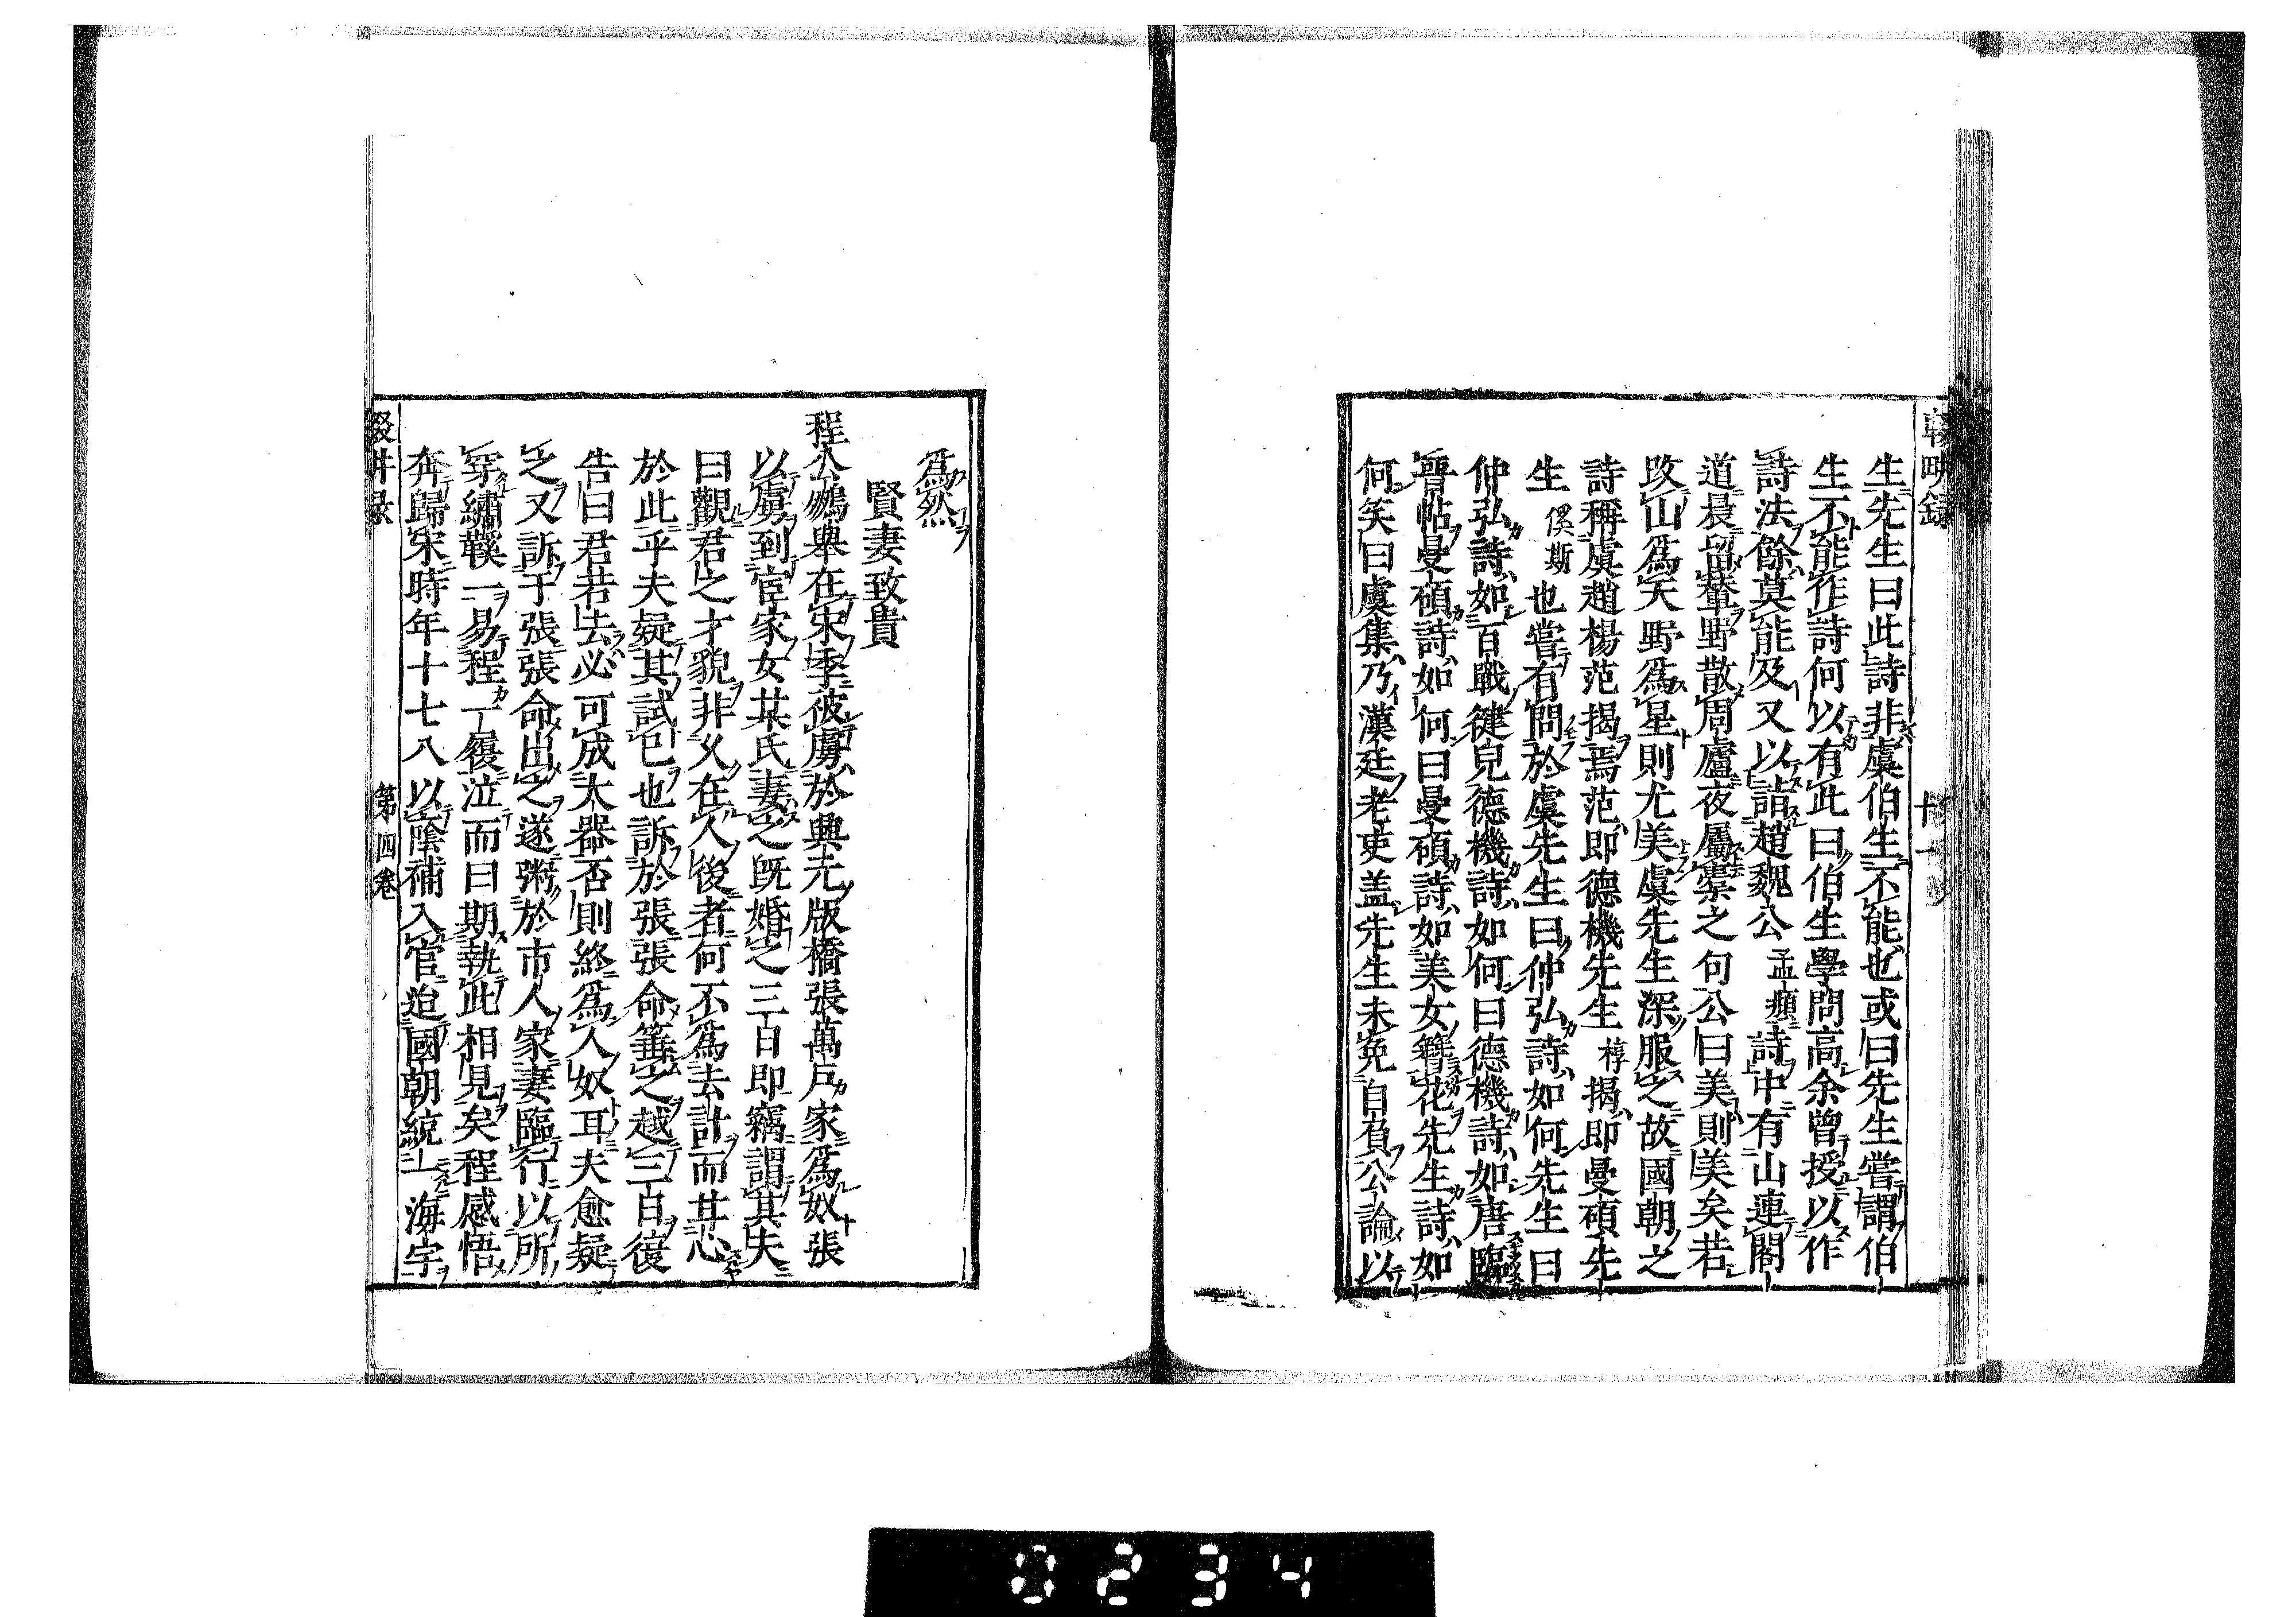 生先生曰此詩非虞伯生不能也或曰先生嘗謂伯
生不能作詩何以有此曰伯生學問高余曾授以作
詩法餘莫能及又以詣趙魏公孟頫詩中有山連閣
道晨留輦野散周廬夜屬橐之句公曰美則美矣若
改山爲天野爲星則尤美虞先生深服之故國朝之
詩稱虞趙楊范揭焉范即德機先生梈揭即曼碩先
生傒斯也嘗有問於虞先生曰仲弘詩如何先生曰
仲弘詩如百戰健兒德機詩如何曰德機詩如唐臨
晉帖曼碩詩如何曰曼碩詩如美女簪花先生詩如
何笑曰虞集乃漢廷老吏盖先生未免自負公論以
爲然
賢妻致貴
程公鵬舉在宋季被虜於興元版橋張萬戶家爲奴張
以虜到宦家女某氏妻之既婚之三日即竊謂其夫
曰觀君之才貌非久在人後者何不爲去計而甘心
於此乎夫疑其試已也訴於張張命箠之越三日復
告曰君若去必可成大器否則終爲人奴耳夫愈疑
之又訴于張張命出之遂粥於市人家妻臨行以所
穿繡鞵一易程一履泣而曰期執此相見矣程感悟
奔歸宋時年十七八以蔭補入官迨國朝統一海宇
第四卷